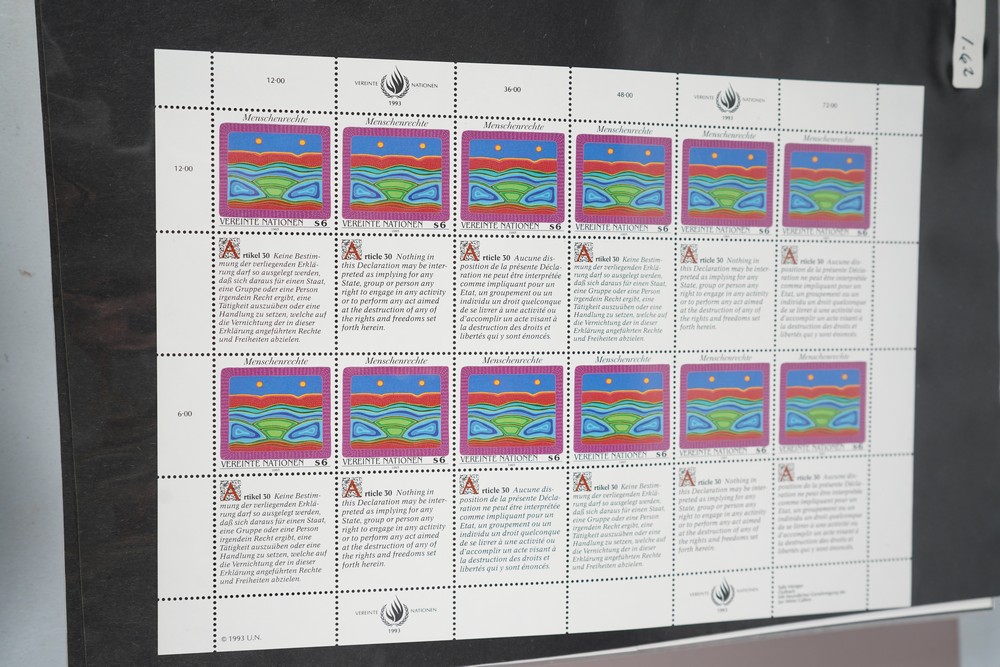 1.62
12·00
VEREINTE NATIONEN
1993
36·00
48·00
VEREINTE NATIONEN
1993
72·00
12·00
Menschenrechte
Menschenrechte
Menschenrechte
Menschenrechte
Menschenrechte
Menschenrechte
VEREINTE NATIONEN s6
VEREINTE NATIONEN s6
VEREINTE NATIONEN s6
VEREINTE NATIONEN s6
VEREINTE NATIONEN s6
VEREINTE NATIONEN s6
Artikel 30 Keine Bestim-
mung der verliegenden Erklä-
rung darf so ausgelegt werden,
daß sich daraus für einen Staat,
eine Gruppe oder eine Person
irgendein Recht ergibt, eine
Tätigkeit auszuüben oder eine
Handlung zu setzen, welche auf
die Vernichtung der in dieser
Erklärung angeführten Rechte
und Freiheiten abzielen.
Article 30 Nothing in
this Declaration may be inter-
preted as implying for any
State, group or person any
right to engage in any activity
or to perform any act aimed
at the destruction of any of
the rights and freedoms set
forth herein.
Article 30 Aucune dis-
position de la présente Décla-
ration ne peut être interprétée
comme impliquant pour un
Etat, un groupement ou un
individu un droit quelconque
de se livrer à une activité ou
d'accomplir un acte visant à
la destruction des droits et
libertés qui y sont énoncés.
Artikel 30 Keine Bestim-
mung der verliegenden Erklä-
rung darf so ausgelegt werden,
daß sich daraus für einen Staat,
eine Gruppe oder eine Person
irgendein Recht ergibt, eine
Tätigkeit auszuüben oder eine
Handlung zu setzen, welche auf
die Vernichtung der in dieser
Erklärung angeführten Rechte
und Freiheiten abzielen.
Article 30 Nothing in
this Declaration may be inter-
preted as implying for any
State, group or person any
right to engage in any activity
or to perform any act aimed
at the destruction of any of
the rights and freedoms set
forth herein.
Article 30 Aucune dis-
position de la présente Décla-
ration ne peut être interprétée
comme impliquant pour un
Etat, un groupement ou un
individu un droit quelconque
de se livrer à une activité ou
d'accomplir un acte visant à
la destruction des droits et
libertés qui y sont énoncés.
6·00
Menschenrechte
Menschenrechte
Menschenrechte
Menschenrechte
Menschenrechte
Menschenrechte
VEREINTE NATIONEN s6
VEREINTE NATIONEN s6
VEREINTE NATIONEN s6
VEREINTE NATIONEN s6
VEREINTE NATIONEN s6
VEREINTE NATIONEN s6
Artikel 30 Keine Bestim-
mung der verliegenden Erklä-
rung darf so ausgelegt werden,
daß sich daraus für einen Staat,
eine Gruppe oder eine Person
irgendein Recht ergibt, eine
Tätigkeit auszuüben oder eine
Handlung zu setzen, welche auf
die Vernichtung der in dieser
Erklärung angeführten Rechte
und Freiheiten abzielen.
Article 30 Nothing in
this Declaration may be inter-
preted as implying for any
State, group or person any
right to engage in any activity
or to perform any act aimed
at the destruction of any of
the rights and freedoms set
forth herein.
Article 30 Aucune dis-
position de la présente Décla-
ration ne peut être interprétée
comme impliquant pour un
Etat, un groupement ou un
individu un droit quelconque
de se livrer à une activité ou
d'accomplir un acte visant à
la destruction des droits et
libertés qui y sont énoncés.
Artikel 30 Keine Bestim-
mung der verliegenden Erklä-
rung darf so ausgelegt werden,
daß sich daraus für einen Staat,
eine Gruppe oder eine Person
irgendein Recht ergibt, eine
Tätigkeit auszuüben oder eine
Handlung zu setzen, welche auf
die Vernichtung der in dieser
Erklärung angeführten Rechte
und Freiheiten abzielen.
Article 30 Nothing in
this Declaration may be inter-
preted as implying for any
State, group or person any
right to engage in any activity
or to perform any act aimed
at the destruction of any of
the rights and freedoms set
forth herein.
Article 30 Aucune dis-
position de la présente Décla-
ration ne peut être interprétée
comme impliquant pour un
Etat, un groupement ou un
individu un droit quelconque
de se livrer à une activité ou
d'accomplir un acte visant à
la destruction des droits et
libertés qui y sont énoncés.
© 1993 U.N.
VEREINTE NATIONEN
1993
VEREINTE NATIONEN
1993